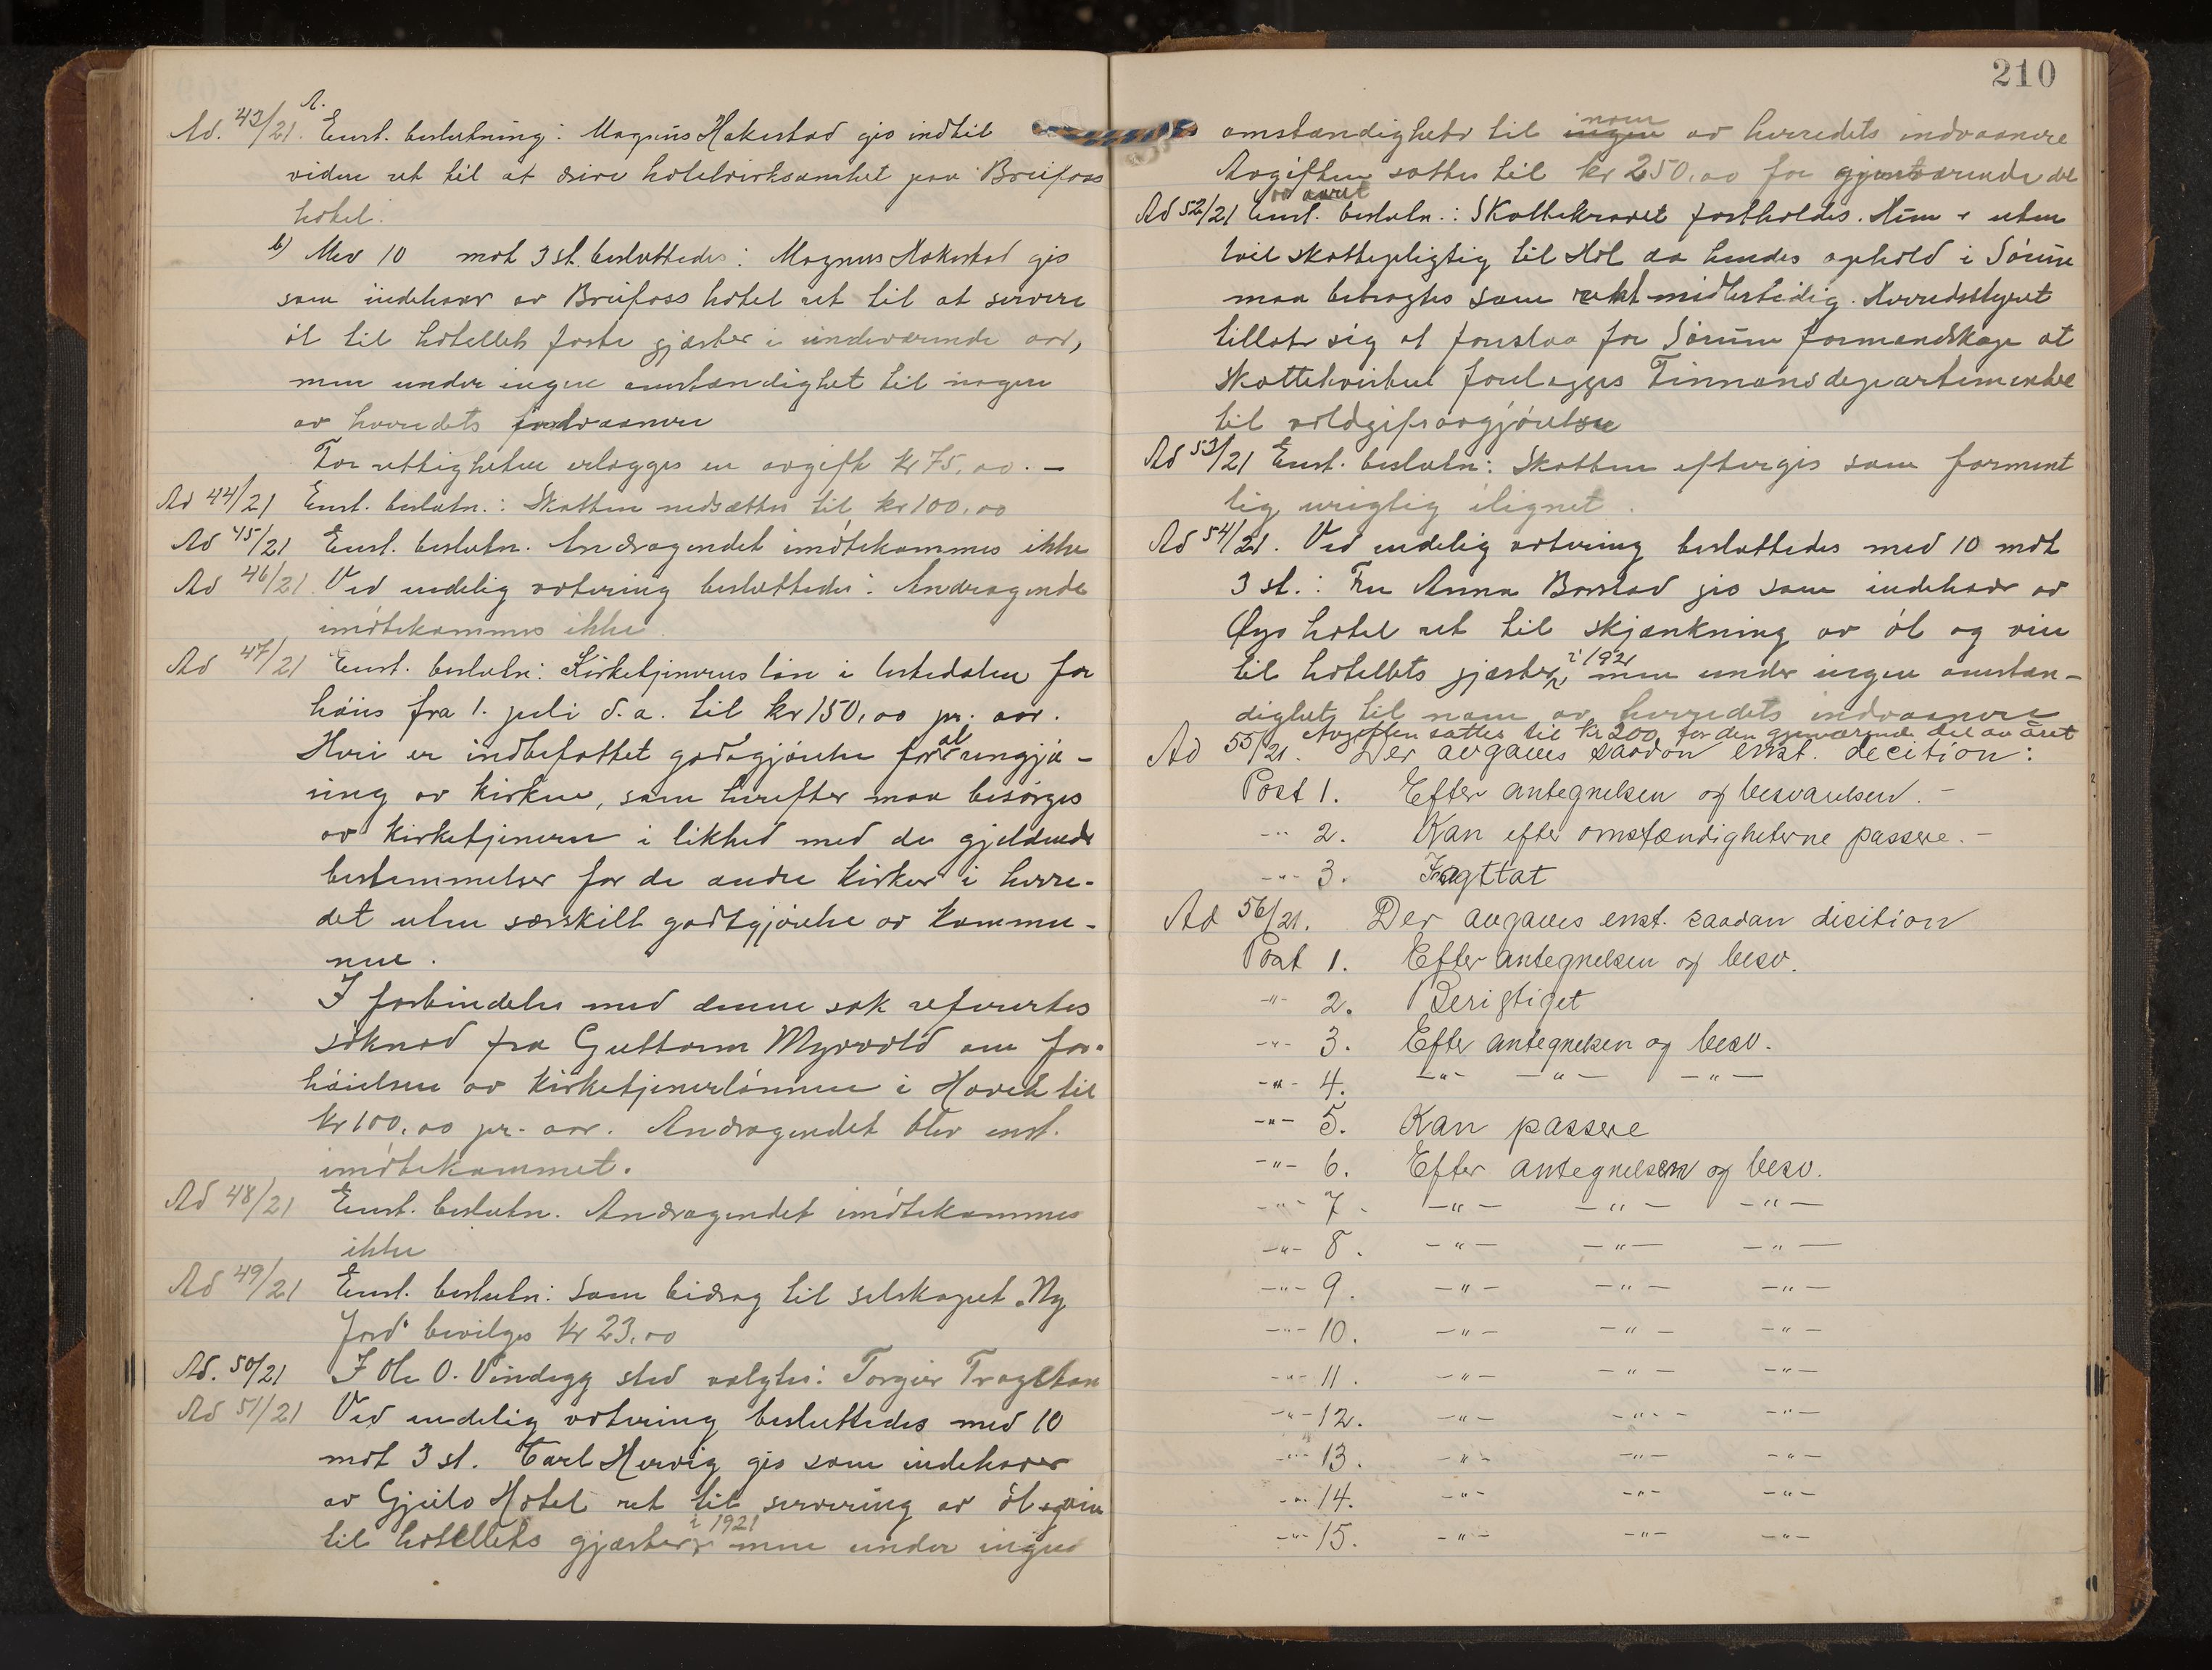 Ad. 43/21. A. Enst. beslutning: Magnus Hakestad gis indtil
videre ret til at drive hotelvirksomhet paa Breifoss
hotel.
b) Med 10 mot 3 st. besluttedes: Magnus Hakestad gis
som indehaver av Breifoss hotel ret til at servere
øl til hotellets faste gjæster i indeværende aar,
men under ingen omstændighet til nogen
av herredets indvaanere
For rettigheten erlægges en avgift kr 75.00. —
Ad 44/21 Enst. beslutn.: Skatten nedsættes til kr 100.00
Ad 45/21 Enst. beslutn. Andragendet imøtekommes ikke
Ad 46/21. Ved endelig votering besluttedes: Andragende
imøtekommes ikke.
Ad 47/21 Enst. beslutn: Kirketjenerens løn i Ustedalen for
høies fra 1. juli d.a. til kr 150,00 pr. aar.
Heri er indbefattet godtgjørelse for al rengjø-
ring av kirken, som herefter maa besørges
av kirketjeneren i likhed med de gjeldende
bestemmelser for de andre kirker i herre-
det uten særskilt godtgjørelse av kommu-
nen.
I forbindelse med denne sak refereres
søknad fra Guttorm Myrvold om for-
høielse av kirketjenerlønnen i Hovet til
kr 100.00 pr. aar. Andragendet blev enst.
imøtekommet.
Ad 48/21 Enst. beslutn. Andragendet imøtekommes
ikke
Ad 49/21 Enst. beslutn: Som bidrag til selskapet "Ny
Jord" bevilges kr 23.00
Ad. 50/21 I Ole O. Vindegg sted valgtes: Torgeir Trageton
Ad 51/21 Ved endelig votering besluttedes med 10
mot 3 st. Carl Hervig gis som indehaver
av Gjeilo Hotel ret til servering av øl og vin
til hotellets gjæster i 1921 men under ingen
210
omstændigheter til ingen noen av herredets indvaanere
Avgiften sættes til kr 250.00 for gjenværende del
av aaret
Ad 52/21 Enst. beslutn.: Skattekravet fastholdes. Hun er uten
tvil skattepligtig til Hol da hendes ophold i Sørum
maa betragtes som rent midlertidig. Herredsstyret
tillater sig at foreslaa for Sørum formandskap at
skattekravet forelægges Finnansdepartementet
til voldgiftsavgjørelse
Ad 53/21 Enst. beslutn: Skatten eftergis som forment
lig urigtig ilignet.
Ad 54/21. Ved endelig votering besluttedes med 10 mot
3 st.: Fru Anna Barstad gis som indehaver av
Øyo hotel ret til skjænkning av øl og vin
til hotellets gjæster i 1921 men under ingen omstæn-
dighet til noen av herredets indvaanere
Avgiften sættes til kr 200 for den gjenværende del av året
Ad 55/21. Der avgaves saadan enst. decition:
Post 1. Efter antegnelsen og besvarelsen. —
-"- 2. Kan efter omstændigheterne passere. —
-"- 3. Iagttat
Ad 56/21. Der avgaves enst. saadan disition
Post 1. Efter antegnelsen og besv.
-"- 2. Berigtiget
-"- 3. Efter antegnelsen og besv.
-"- 4. —"— —"— —"—
-"- 5. Kan passere
-"- 6. Efter antegnelsen og besv.
-"- 7. —"— —"— —"—
-"- 8. —"— —"— —"—
-"- 9. —"— —"— —"—
-"- 10. —"— —"— —"—
-"- 11. —"— —"— —"—
-"- 12. —"— —"— —"—
-"- 13. —"— —"— —"—
-"- 14. —"— —"— —"—
-"- 15. —"— —"— —"—